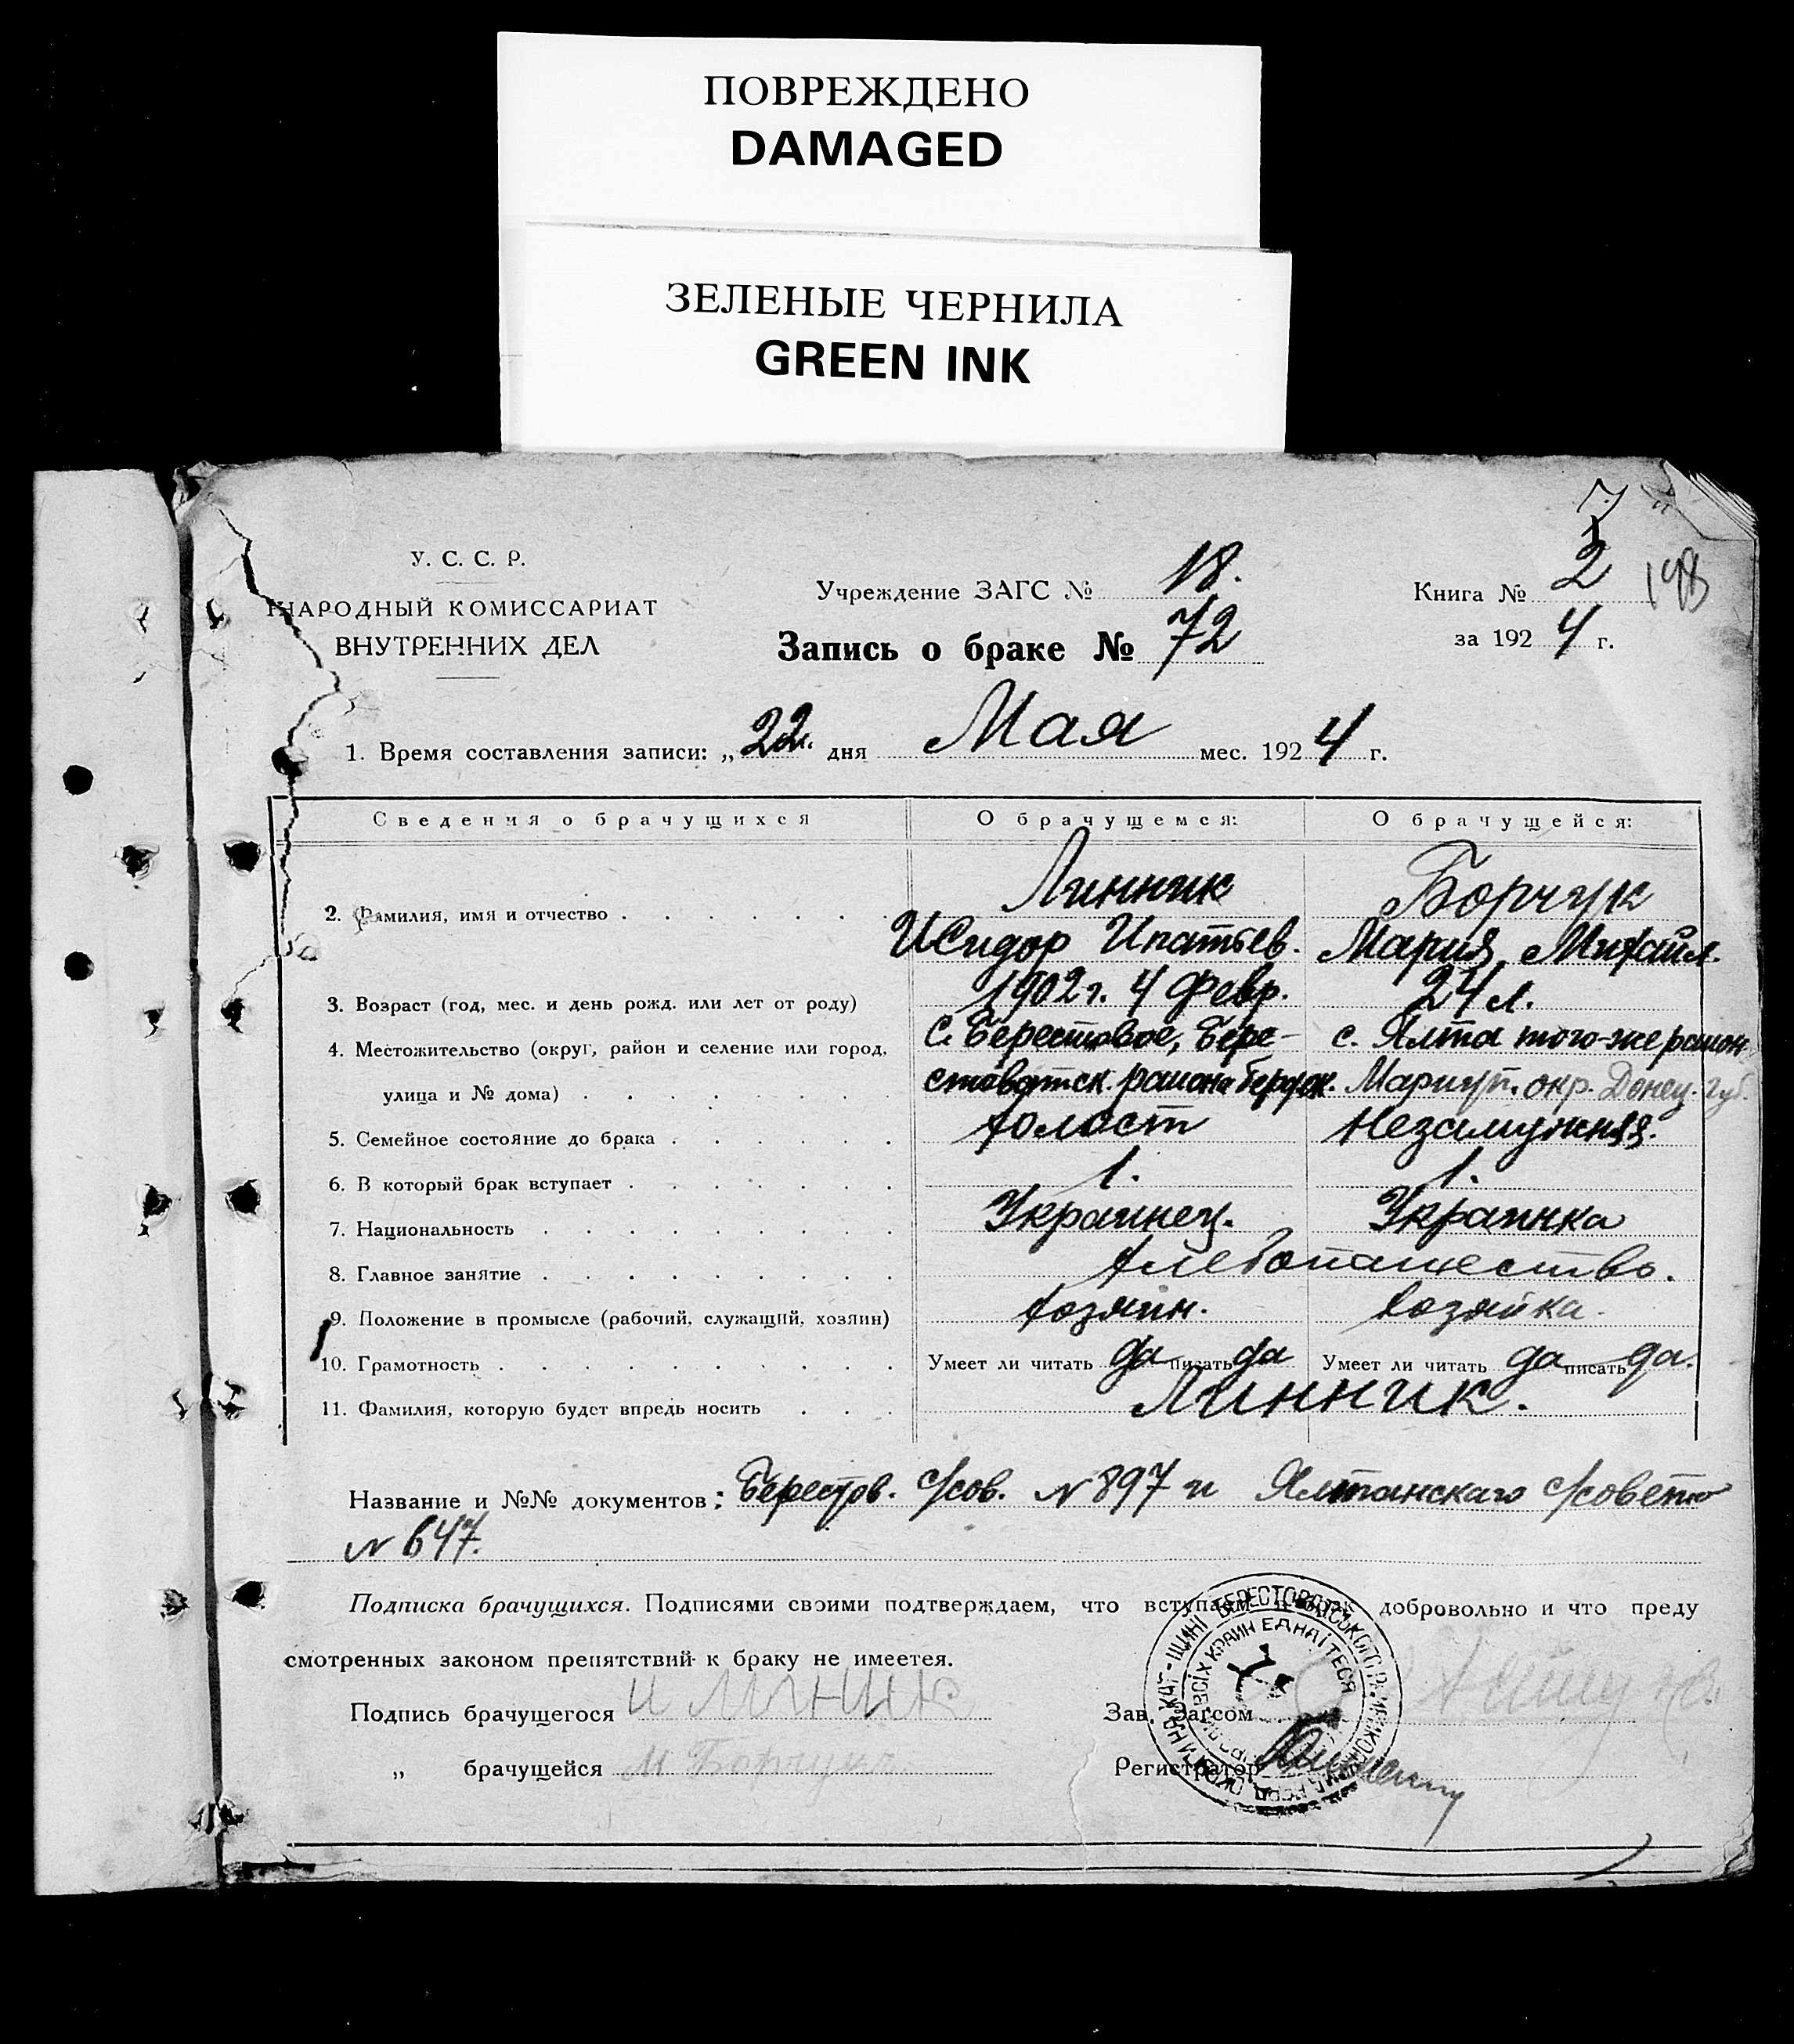 ПОВРЕЖДЕНО
DAMAGED
ЗЕЛЕНЫЕ ЧЕРНИЛА
GREEN INK
7
У. С. С. Р.
НАРОДНЫЙ КОМИССАРИАТ
ВНУТРЕННИХ ДЕЛ
Учреждение ЗАГС № 18.
Запись о браке № 72
Книга № 2 198
за 1924 г.
1. Время составления записи: „22. дня Мая мес. 1924 г.
Сведения о брачущихся О брачущемся: О брачущейся:
2. Фамилия, имя и отчество Линник Борчук
Исидор Ипатьев. Мария Михайл.
3. Возраст (год, мес. и день рожд. или лет от роду) 1902 г. 4 Февр. 24 л.
4. Местожительство (округ, район и селение или город, с. Берестовое, Бере- с. Ялта того-же район.
улица и № дома) стоватск. района Бердян. Мариуп. окр. Донец. губ.
5. Семейное состояние до брака холост незамужняя.
6. В который брак вступает 1. 1.
7. Национальность Украинец. Украинка
8. Главное занятие хлебопашество.
9. Положение в промысле (рабочий, служащий, хозяин) хозяин. хозяйка.
10. Грамотность Умеет ли читать да писать да Умеет ли читать да писать да.
11. Фамилия, которую будет впредь носить Линник.
Название и №№ документов: Берестов. с/сов. № 897 и Ялтанскаго с/совета
№ 647.
Подписка брачущихся. Подписями своими подтверждаем, что вступаем в брак добровольно и что преду
смотренных законом препятствий к браку не имеетея.
Подпись брачущегося И Линник Зав. Загсом
„ брачущейся М Борчук Регистратор
БЕРЕСТОВАТСЬКОГО ВСІХ КРАИН ЕДНАЙТЕСЯ